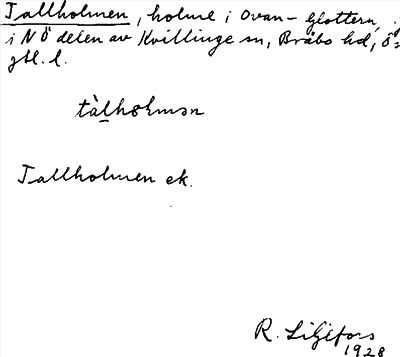 Tallholmen, holme i Ovan-Glottern,
i NÖ delen av Kvillinge sn, Bråbo hd, Ö=
gtl. l.
tàlhɷlmən
Tallholmen ek.
R. Liljefors
1928